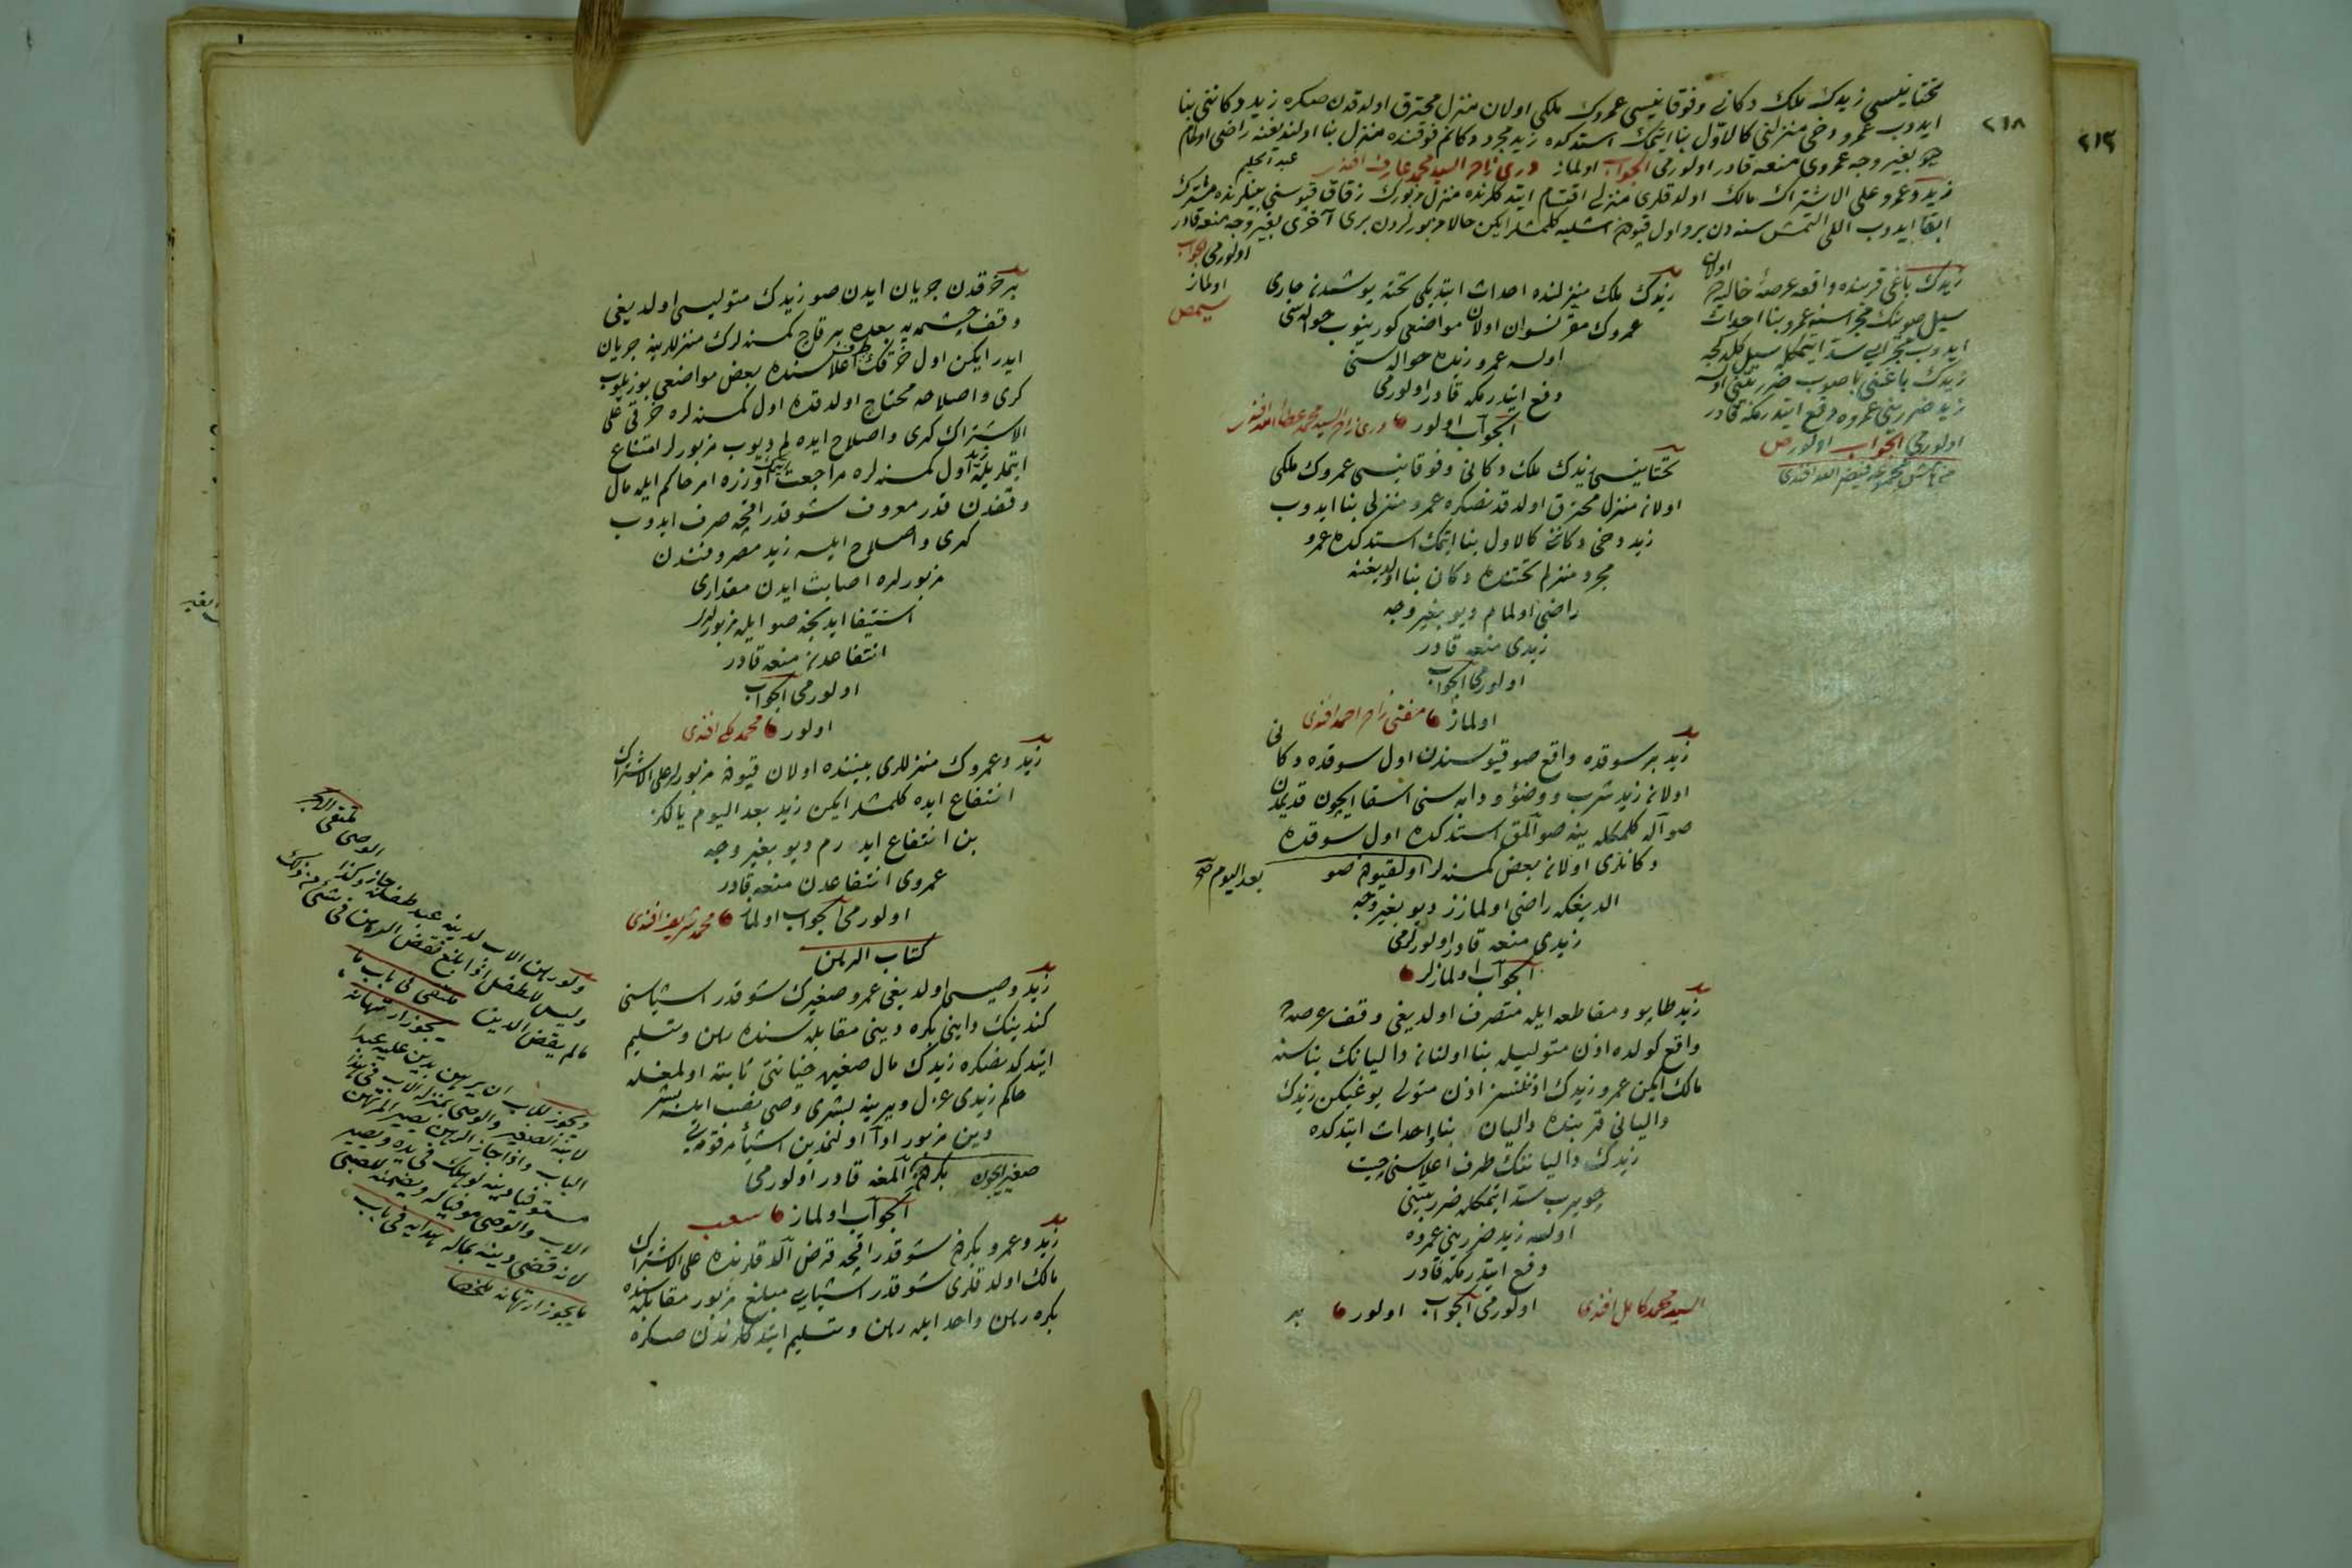 ٢١٨
٢١٣
تختانیسی زیدك ملك دكانی وفوقانیسی عمروك ملكی اولان منزل محترق اولدقدن صكره زید دكاننی بنا
ایدوب عمرو دخی منزلنی كالاول بنا ایتمك استدكده زید مجرد دكانم فوقنده منزل بنا اولندیغنه راضی اولمام
دیو بغیر وجه عمروی منعه قادر اولورمی الجواب اولماز دری زاده السید محمد عارف افندی
عبد الحلیم
زید وعمرو علی الاشتراك مالك اولدقلری منزلی اقتسام ایتدكلرنده منزل مزبورك زقاق قپوسنی بینلرنده مشترك
ابقا ایدوب اللی التمش سنه دن برو اول قپودن اشلیه كلمشلر ایكن حالا مزبورلردن بری آخری بغیر وجه منعه قادر
اولورمی الجواب
اولماز
زیدك باغی قربنده واقع عرصهٔ خالیه
اولان
سیل صوینك مجراسنه عمرو بنا احداث
ایدوب مجرایی سد ایتمكله سیل كلدكجه
زیدك باغنی باصوب ضرر بتنی اولسه
زید ضررینی عمروه دفع ایتدرمكه قادر
اولورمی الجواب اولور
زیدك ملك منزلنده احداث ایتدیكی تخته پوشدن جاری
عمروك مقر نسوان اولان مواضعی كورینوب حواله سی
اولسه عمرو زیده حواله سنی
دفع ایتدرمكه قادر اولورمی
الجواب اولور دری زاده السید محمد عطاء الله افندی
تختانیسی زیدك ملك دكانی وفوقانیسی عمروك ملكی
اولان منزل محترق اولدقدنصكره عمرو منزلی بنا ایدوب
زید دخی دكانن كالاول بنا ایتمك استدكده عمرو
مجرد منزلم تختنده دكان بنا اولدیغنه
راضی اولمام دیو بغیر وجه
زیدی منعه قادر
اولورمی الجواب
اولماز مفتی زاده احمد افندی
زید بر سوقده واقع صو قپوسندن اول سوقده دكانی
اولان زید شرب ووضوء ودابه سنی اسقا ایچون قدیمدن
صو آله كلمكله ینه صو آلمق استدكده اول سوقده
دكانلری اولان بعض كمسنه لر اولقپودن صو
بعد الیوم صح
الدیغكه راضی اولمازز دیو بغیر وجه
زیدی منعه قادر اولورلرمی
الجواب اولمازلر
زید طاپو ومقاطعه ایله متصرف اولدیغی وقف عرصه ده
واقع كولده اذن متولیله بنا اولنان دالیانك بناسنه
مالك ایكن عمرو زیدك اذنلنسز اذن متولی یوغیكن زیدك
دالیانی قربنده دالیان بنا واحداث ایتدكده
زیدك دالیاننك طرف اعلاسنی چیت
چویروب سد ایتمكله ضرر بتنی
اولسه زید ضررینی عمروه
دفع ایتدرمكه قادر
اولورمی الجواب اولور السید محمد كامل افندی
بر خرقدن جریان ایدن صو زیدك متولیسی اولدیغی
وقف چشمه یه بعده بر قاچ كمسنه لرك منزللرینه جریان
ایدر ایكن اول خرقك طرف اعلاسنده بعض مواضعی بوزیلوب
كری واصلاحه محتاج اولدقده اول كمسنه لره خرقی علی
الاشتراك كری واصلاح ایده لم دیوب مزبورلر امتناع
ایتملریله زید اول كمسنه لره مراجعت ایتمك اوزره امر حاكم ایله مال
وقفدن قدر معروف شو قدر اقچه صرف ایدوب
كری واصلاح ایلسه زید مصروفندن
مزبورلره اصابت ایدن مقداری
استیفا ایدنجه صو ایله مزبورلر
انتفاعدن منعه قادر
اولورمی الجواب
اولور محمد مكی افندی
زید وعمروك منزللری بیننده اولان قپودن مزبورلر علی الاشتراك
انتفاع ایده كلمشلر ایكن زید بعد الیوم یالكز
بن انتفاع ایدرم دیو بغیر وجه
عمروی انتفاعدن منعه قادر
اولورمی الجواب اولماز محمد شریف افندی
كتاب الرهن
زید وصیسی اولدیغی عمرو صغیرك شو قدر اشیاسنی
كندینك داینی بكره دینی مقابله سنده رهن وتسلیم
ایتدكدنصكره زیدك مال صغیره خیانتی ثابته اولمغله
حاكم زیدی عزل ویرینه بشری وصی نصب ایلسه بشر
دین مزبور ادا اولنمدین اشیاء مرقومه یی
صغیر ایچون بكردن آلمغه قادر اولورمی
الجواب اولماز
زید وعمرو بكردن شو قدر اقچه قرض آلدقلرنده علی الاشتراك
مالك اولدقلری شو قدر اشیایی مبلغ مزبور مقابله سنده
بكره رهن واحد ایله رهن وتسلیم ایتدكلرندن صكره
ولو رهن الاب لدینه عبد طفله جاز وكذا الوصی
ولیس للطفل اذا بلغ نقض الرهن فی شئ من ذلك
مالم یقض الدین ملتقی فی باب ما
یجوز ارتهانه
ویجوز للاب ان یرهن بدین علیه عبدا
لابنه الصغیر والوصی بمنزلة الاب فی هذا
الباب واذا جاز الرهن یصیر المرتهن
مستوفیا دینه لو هلك فی یده ویصیر
الاب والوصی موفیا له ویضمنه للصبی
لانه قضی دینه بماله هدایه فی باب
ما یجوز ارتهانه ملخصا